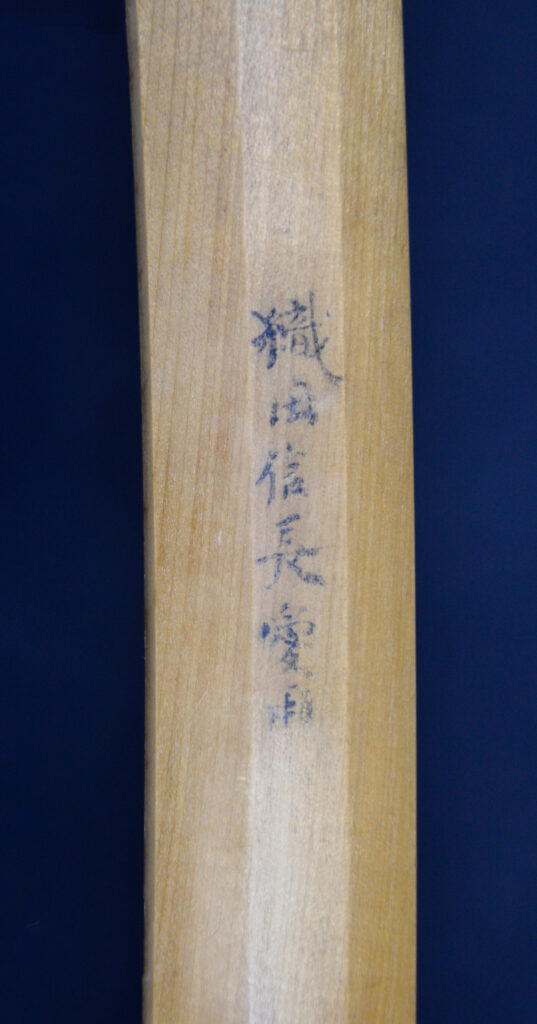 織田信長愛用